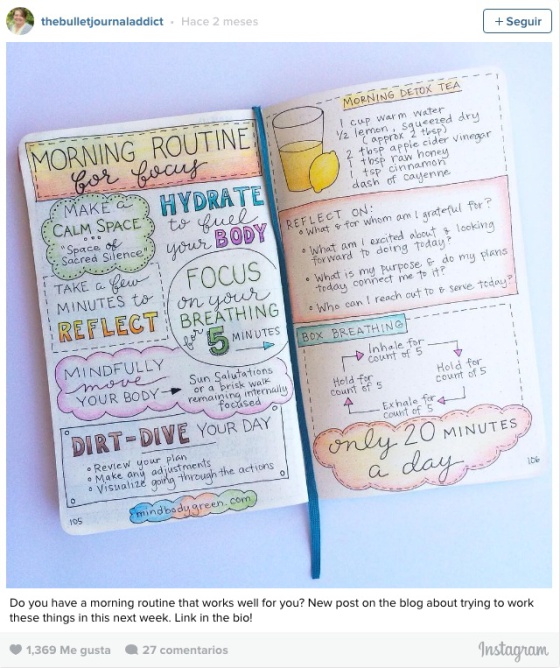 thebulletjournaladdict • Hace 2 meses
+ Seguir
MORNING ROUTINE
for focus
MAKE a
CALM SPACE
"Space of
Sacred Silence"
HYDRATE
to fuel
your BODY
TAKE a few
MINUTES to
REFLECT
FOCUS
on your
BREATHING
for 5 MINUTES
MINDFULLY
move
YOUR BODY
Sun Salutations
or a brisk walk
remaining internally
focused
DIRT-DIVE YOUR DAY
• Review your plan
• Make any adjustments
• Visualize going through the actions
mindbodygreen.com
105
MORNING DETOX TEA
1 cup warm water
1/2 lemon, squeezed dry
(approx 2 tbsp)
2 tbsp apple cider vinegar
1 tbsp raw honey
1 tsp cinnamon
dash of cayenne
REFLECT ON:
• What & for whom am I grateful for?
• What am I excited about & looking
forward to doing today?
• What is my purpose & do my plans
today connect me to it?
• Who can I reach out to & serve today?
BOX BREATHING
Inhale for
count of 5
Hold for
count of 5
Exhale for
count of 5
Hold for
count of 5
only 20 MINUTES
a day
106
Do you have a morning routine that works well for you? New post on the blog about trying to work
these things in this next week. Link in the bio!
1,369 Me gusta
27 comentarios
Instagram